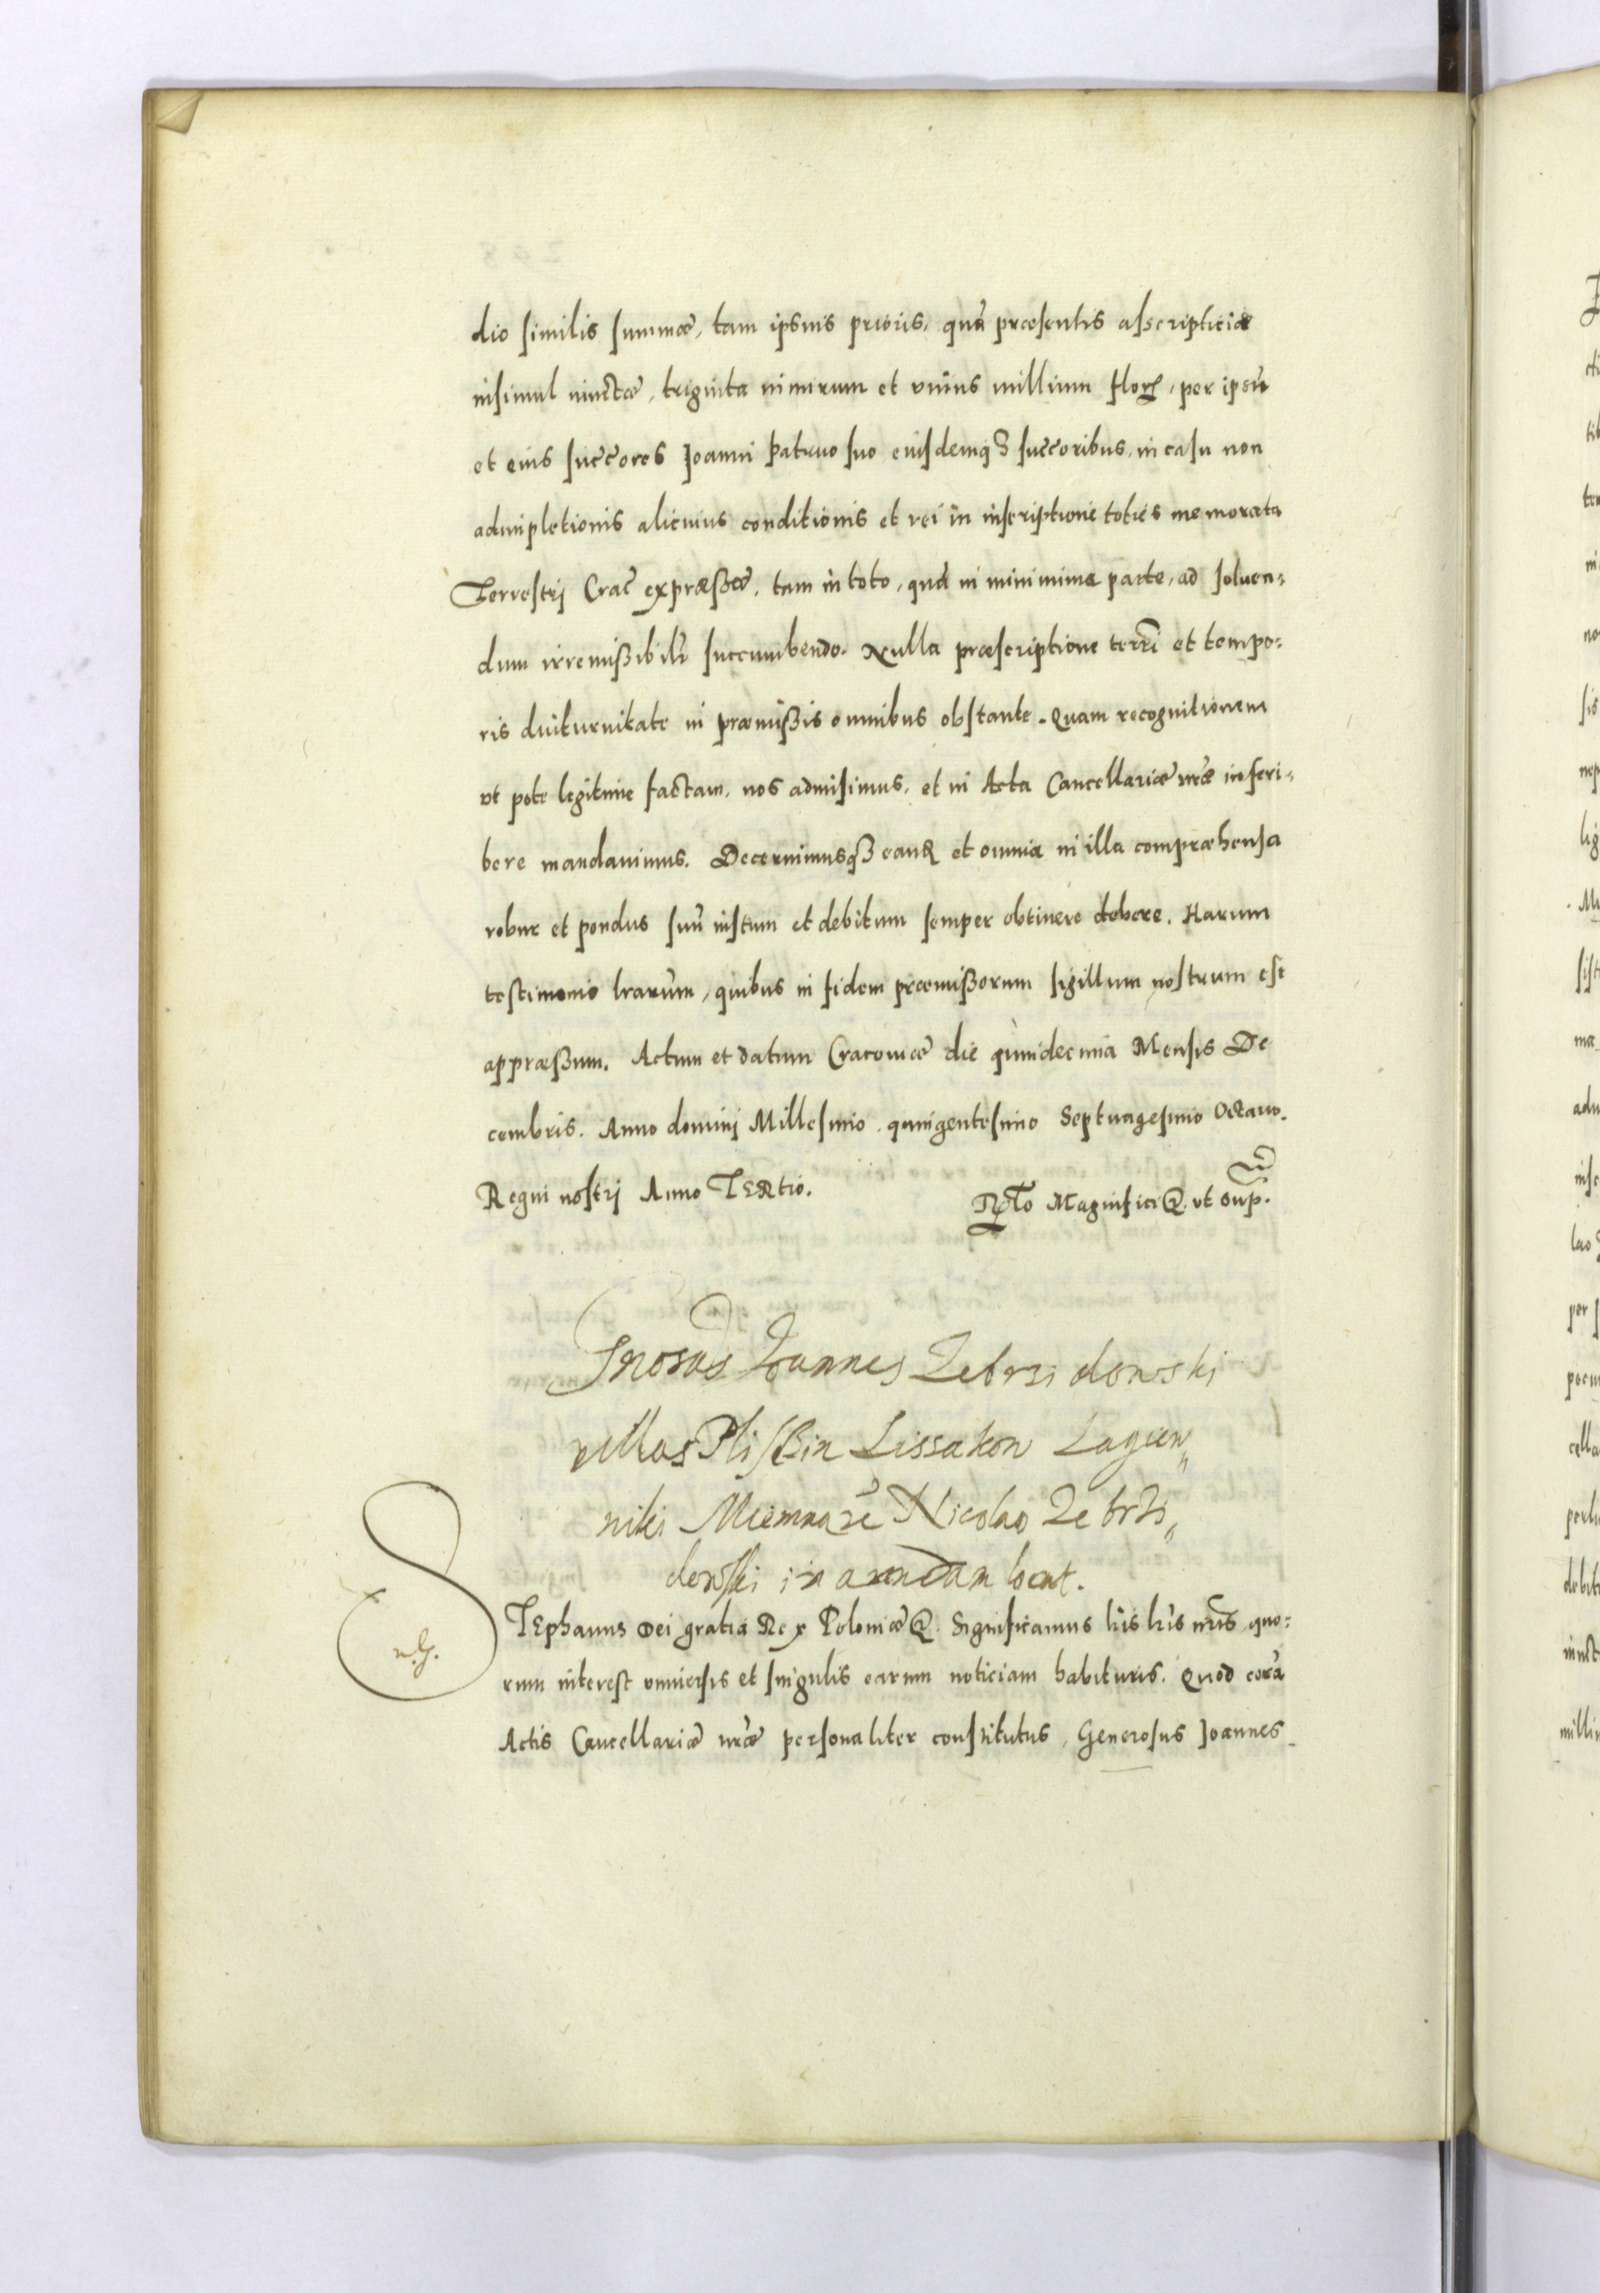 dio similis summæ, tam ipsius prioris, quã præsentis asscripticiæ
insimul iunctæ, triginta nimirum et unius millium Flor, per ipsũ
et eius succores Joanni Patruo suo eiusdemqȝ succoribus, in casu non
adimpletionis alicuius conditionis et rei in inscriptione toties memorata
Terrestrj Crac expræßæ, tam in toto, quã in minimima parte, ad soluen:
dum irremißibilr succumbendo. Nulla præscriptione terri et tempo:
ris diuturnitate in præmißis omnibus obstante. Quam recognitionem
ut pote legitime factam, nos admisimus, et in Acta Cancellariæ nræ inscri:
bere mandauimus. Decernimusqȝ eandem et omnia in illa compræhensa
robur et pondus suũ iustum et debitum semper obtinere debere. Harum
testimonio lrarum, quibus in fidem præmißorum sigillum nostrum est
appræßum. Actum et datum Cracouiæ die quindecima Mensis De
cembris. Anno dominj Millesimo quingentesimo Septuagesimo Octauo.
Regni nostrj Anno TERtio.
Rlto Magnifici &. ut sup.
Gnosus Joannes Zebrzidowski
villas Plischin Lissakow Lagiew„
niki Nicolao Zebrzi„
dowski in arendam locat.
STEphanus Dei gratia Rex Poloniæ &. Significamus hîs lrîs nrîs, quo:
rum interest vniuersis et singulis earum noticiam habituris. Quod corã
Actis Cancellariæ nræ personaliter constitutus, Generosus Joannes